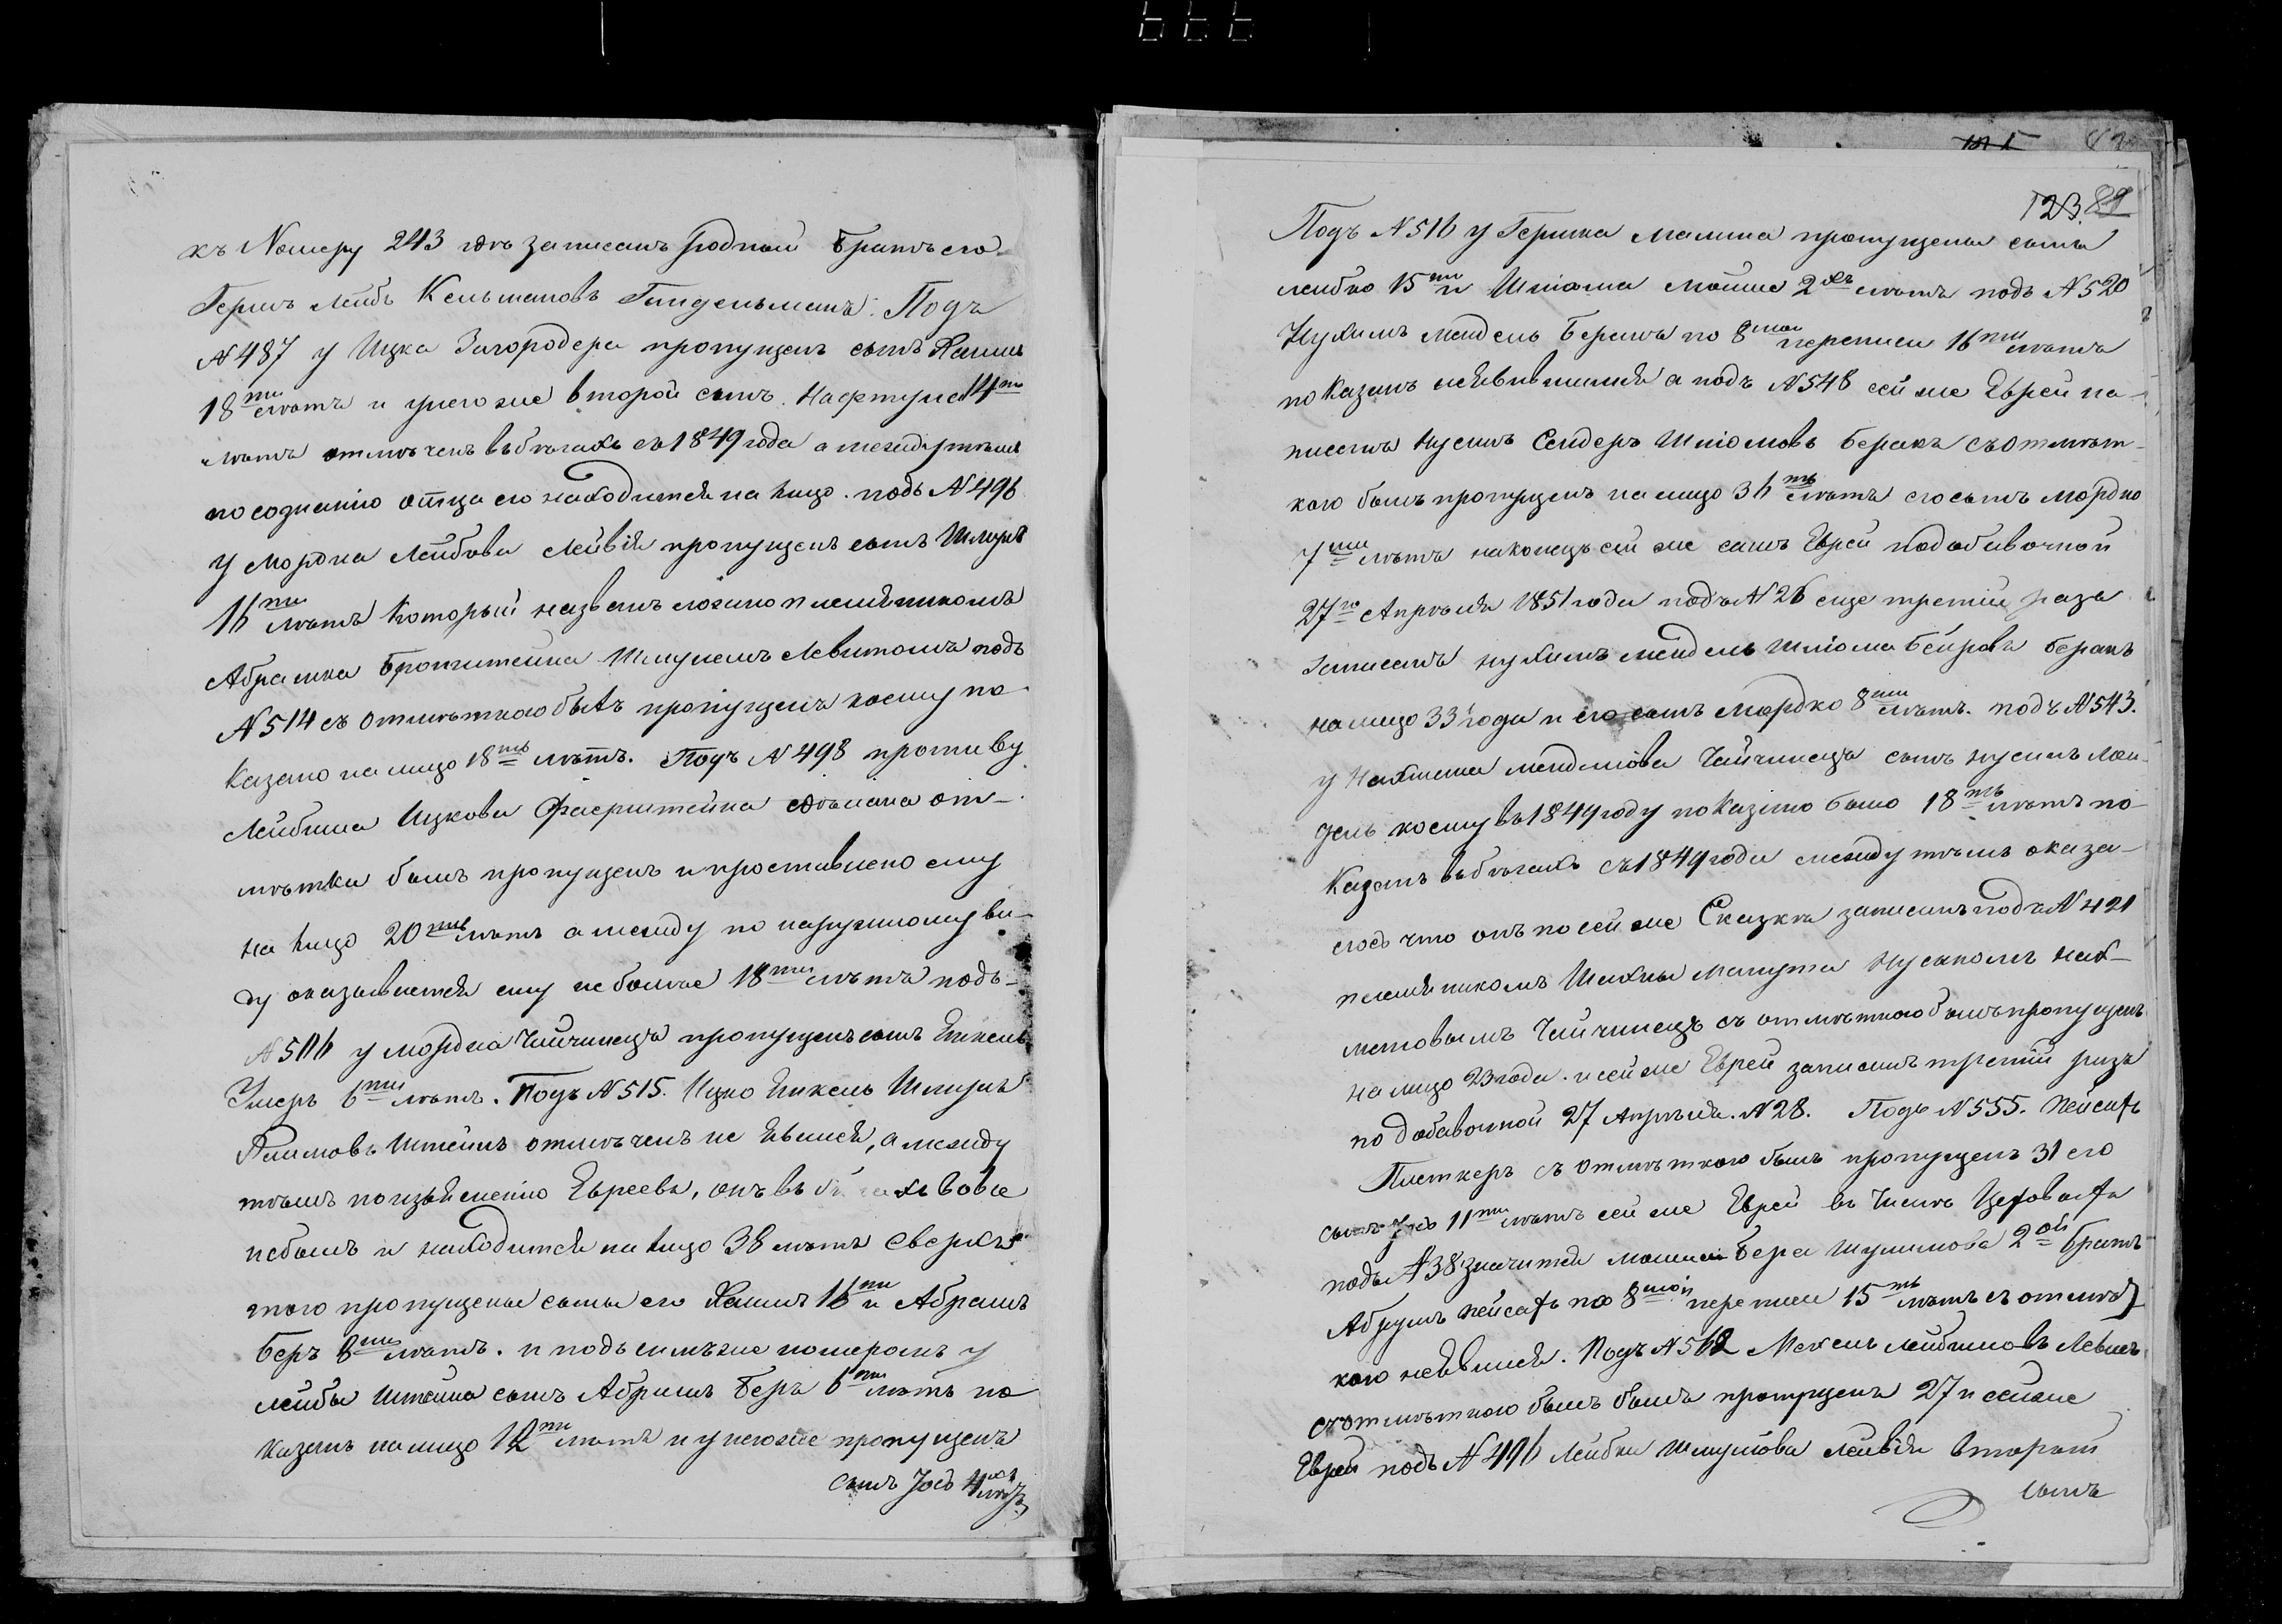 къ Номеру 243 гдѣ записанъ родной братъ его
Гершъ Лейбъ Кельмановъ Гиндельманъ. Подъ
№ 487 у Ицка Загородера пропущенъ сынъ Хаимъ
18ти лѣтъ и унегоже второй сынъ Нафтула 14ти
лѣтъ отмѣченъ въбѣгахъ съ 1849 года а междутѣмъ
по сознанію отца его находится на лицо. подъ № 496
У Мордка Лейбова Лейвія пропущенъ сынъ Шмуль
16ти лѣтъ который названъ ложно племянникомъ
Абрамка Бронштейна Шмулемъ Левитомъ подъ
№ 514 съ отмѣткою бытъ пропущенъ коему по
казано на лицо 18ть лѣтъ. Подъ № 498 противу
Лейбиша Ицкова Фаерштейна сдѣлана от-
мѣтка былъ пропущенъ и проставлено ему
на лицо 20ть лѣтъ а между по наружному ви-
ду оказывается ему не болѣе 18ти лѣтъ подъ
№ 506 у Мордка Чайчинеца пропущенъ сынъ Янкель
Умеръ 6ти лѣтъ. Подъ № 515. Ицко Янкель Шмуль
Хаимовъ Штейнъ отмѣченъ не явился, а между
тѣмъ по изъясненію Евреевъ, онъ въ бѣгахъ вовсе
небылъ и находится на лицо 38 лѣтъ сверхъ
того пропущены сыны его Хаимъ 16ти и Абрамъ
Беръ 8ми лѣтъ. и подъ симъже номеромъ у
Лейбы Штейна сынъ Абрамъ Беръ 6ти лѣтъ по
казанъ на лицо 12ти лѣтъ и у негоже пропущенъ
сынъ Іосъ 4хъ лѣтъ
123 89
Подъ № 516 у Гершка Малиса пропущены сыны
Лейбко 15ти и Шлома Мойше 2хъ лѣтъ подъ № 520
Нухимъ Мендель Беракъ по 8мой переписи 16ти лѣтъ
показанъ неявившимся а подъ № 548 сей же Еврей на-
писанъ Нусинъ Сендеръ Шліомовъ Беракъ съ отмѣт-
кою былъ пропущенъ на лицо 36ть лѣтъ его сынъ Мордко
7ми лѣтъ наконецъ сей же самъ Еврей подобавочной
27го Апрѣля 1851 года подъ № 26 еще третій разъ
записанъ Нухимъ Мендель Шліома Бейровъ Беракъ
на лицо 33 года и его сынъ Мордко 8ми лѣтъ. подъ № 543.
у Нахмана Мендлиова Чайчинеца сынъ Нусинъ Мен
дель коему въ 1849 году показано было 18ть лѣтъ по
казанъ въбѣгахъ съ 1849 года между тѣмъ оказа-
лось что онъ по сей же Сказкѣ записанъ подъ № 421
племянникомъ Шахны Манута Нусиномъ Нах-
мановымъ Чайчинецъ съ отмѣткою былъ пропущенъ
на лицо 23 года. и сей же Еврей записанъ третій разъ
по добавочной 27 Апрѣля. № 28. Подъ № 555. Пейсахъ
Пасткеръ съ отмѣткою былъ пропущенъ 31 его
сынъ Іосъ 11ти лѣтъ сей же Еврей въ числѣ
подъ № 38 значится Мошка Бера Шулимова 2ой братъ
Абрумъ Пейсахъ по 8мой переписи 15ть лѣтъ съ отмѣт
кою неявился. Подъ № 562 Мехель Лейбишовъ
съ отмѣткою былъ былъ пропущенъ 27 и сейже
Еврей подъ № 496 Лейбки Шмулова Лейвія второй
сынъ